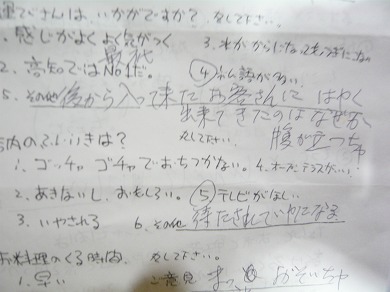 運てさんは、いかがですか？、をして下さい。
感じがよく よく気がつく
3. 水がからになっ
2. 高知では最低No1だ。
④ 私語が多い
5. その他 後から入って来たお客さんに はやく
出来てきたのはなぜか
腹が立つちゃ
店内のふんいきは？ をして下さい。
1. ゴッチャゴッチャでおちつかない。 4. オープンテラスがいい
2. あきないし、おもしろい。 ⑤ テレビがほしい
3. いやされる 6. その他 待たされていやになる
お料理のくる時間、をして下さい。
1. 早い ご意見 まっ おそいちゃ